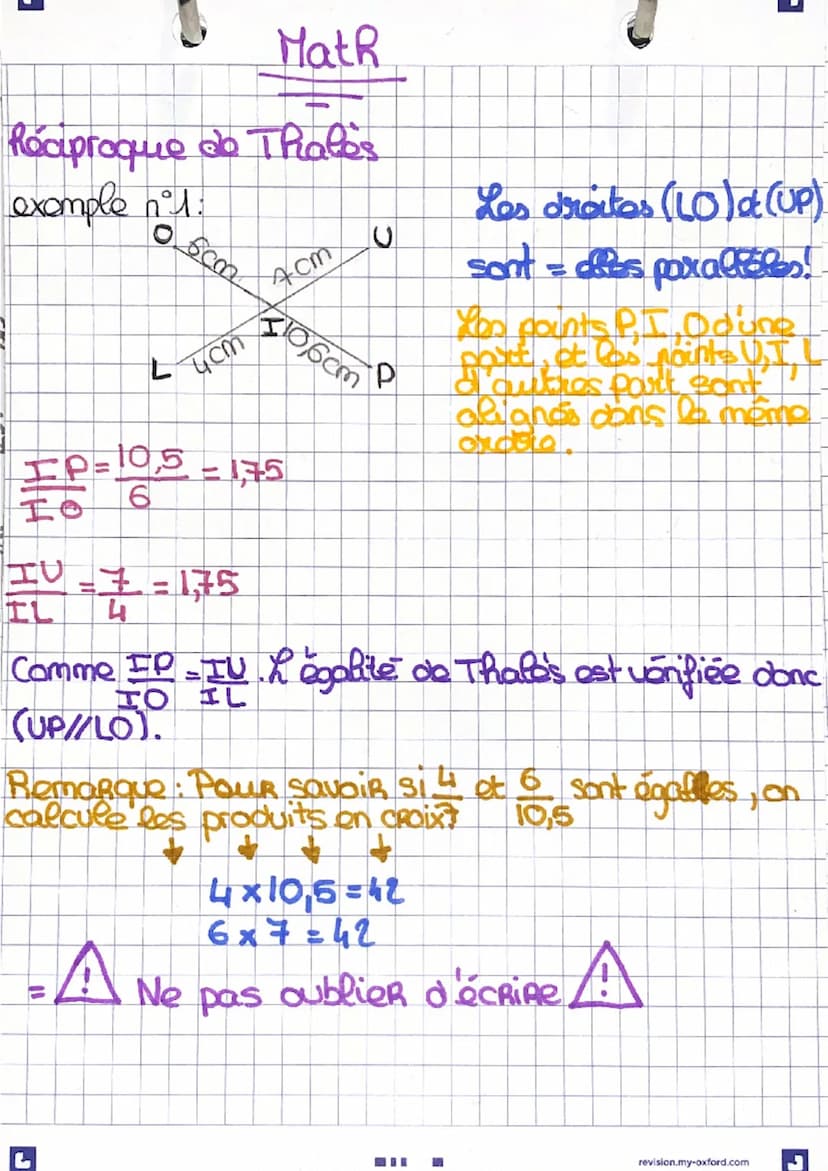 Math
Réciproque de Thalès
exemple n°1:
O 6cm 7cm U
I
L 4cm 10,6cm P
Les droites (LO) et (UP)
sont = elles parallèles!
Les points P, I, O d'une
part, et les points U, I, L
d'autres part sont
alignés dans le même
ordre.
IP/IO = 10,5/6 = 1,75
IU/IL = 7/4 = 1,75
Comme IP/IO = IU/IL. L'égalité de Thalès est vérifiée donc
(UP//LO).
Remarque: Pour savoir si 4/7 et 6/10,5 sont égalles, on
calcule les produits en croix
4 x 10,5 = 42
6 x 7 = 42
= ! Ne pas oublier d'écrire !
revision.my-oxford.com